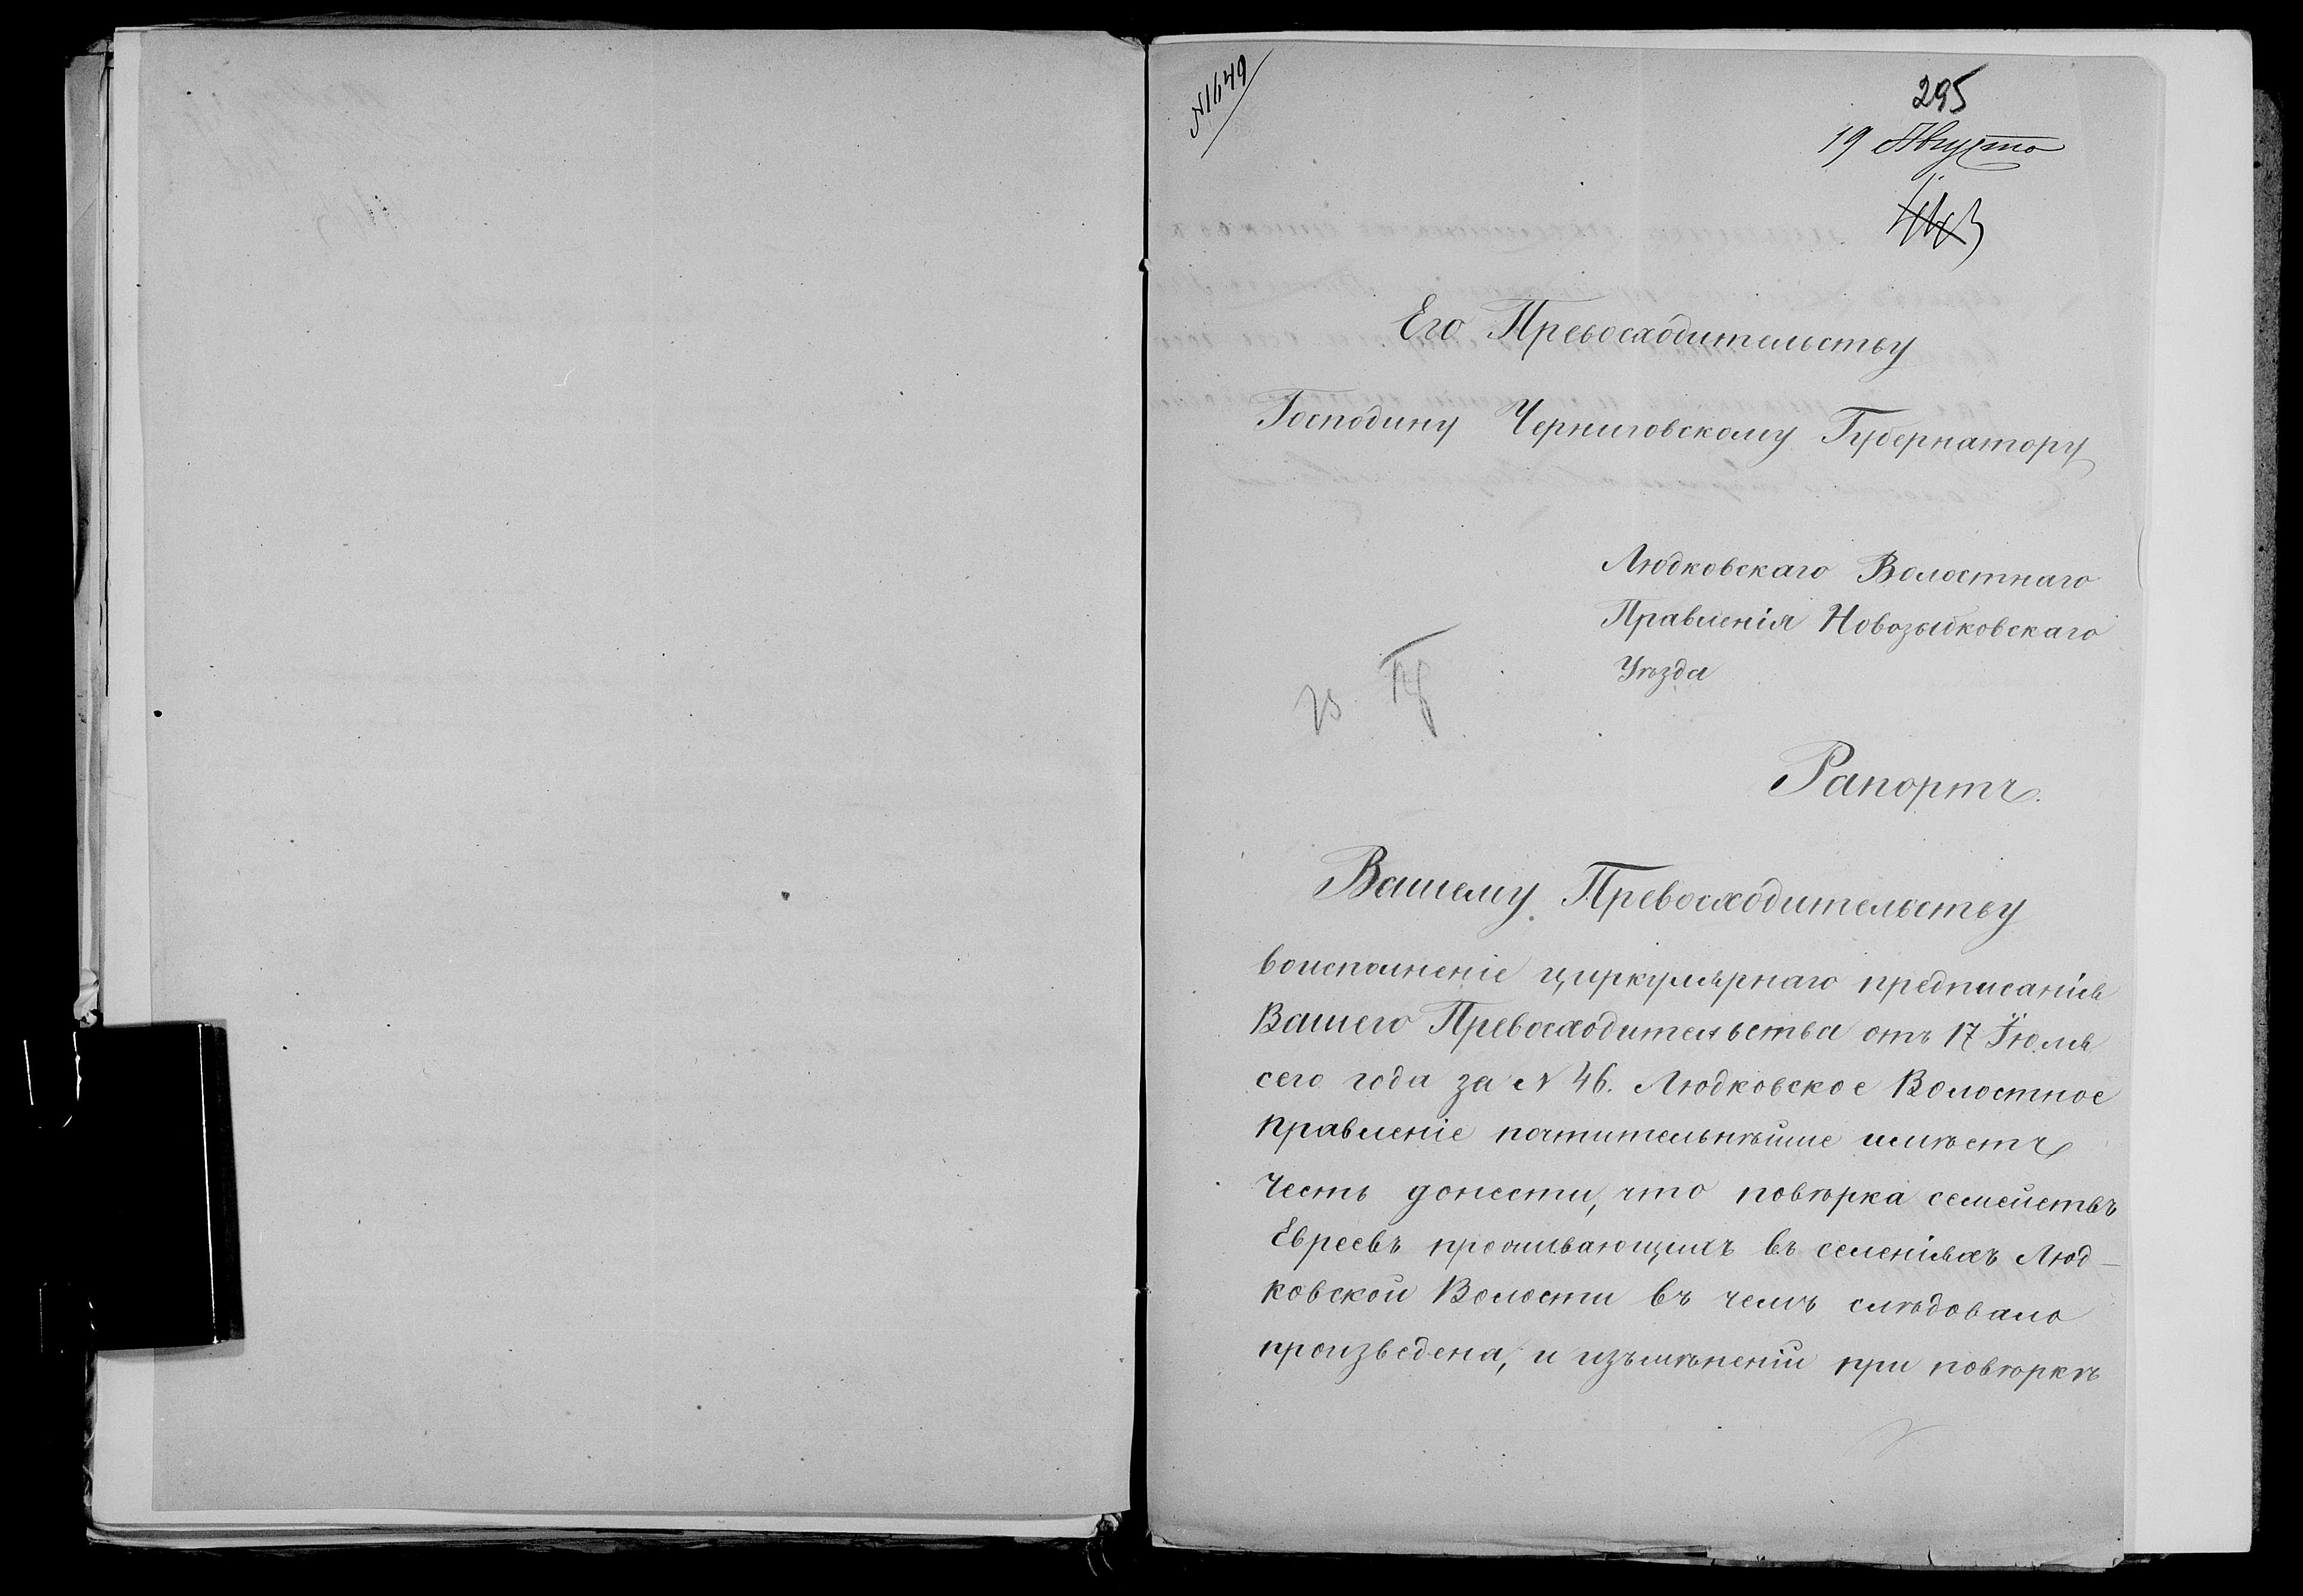 №1649
295
19 Августа
Его Превосходительству
Господину Черниговскому Губернатору
Людковскаго Волостнаго
Правленія Новозыбковскаго
Уѣзда
Рапортъ.
Вашему Превосходительству
воисполненіе циркулярнаго предписанія
Вашего Превосходительства отъ 17 Іюля
сего года за № 46. Людковское Волостное
правленіе почтительнѣйше имѣетъ
честь донести, что повѣрка семействъ
Евреевъ проживающихъ въ селеніяхъ Люд-
ковской Волости въ чемъ слѣдовало
произведена, и измѣненій при повѣркѣ